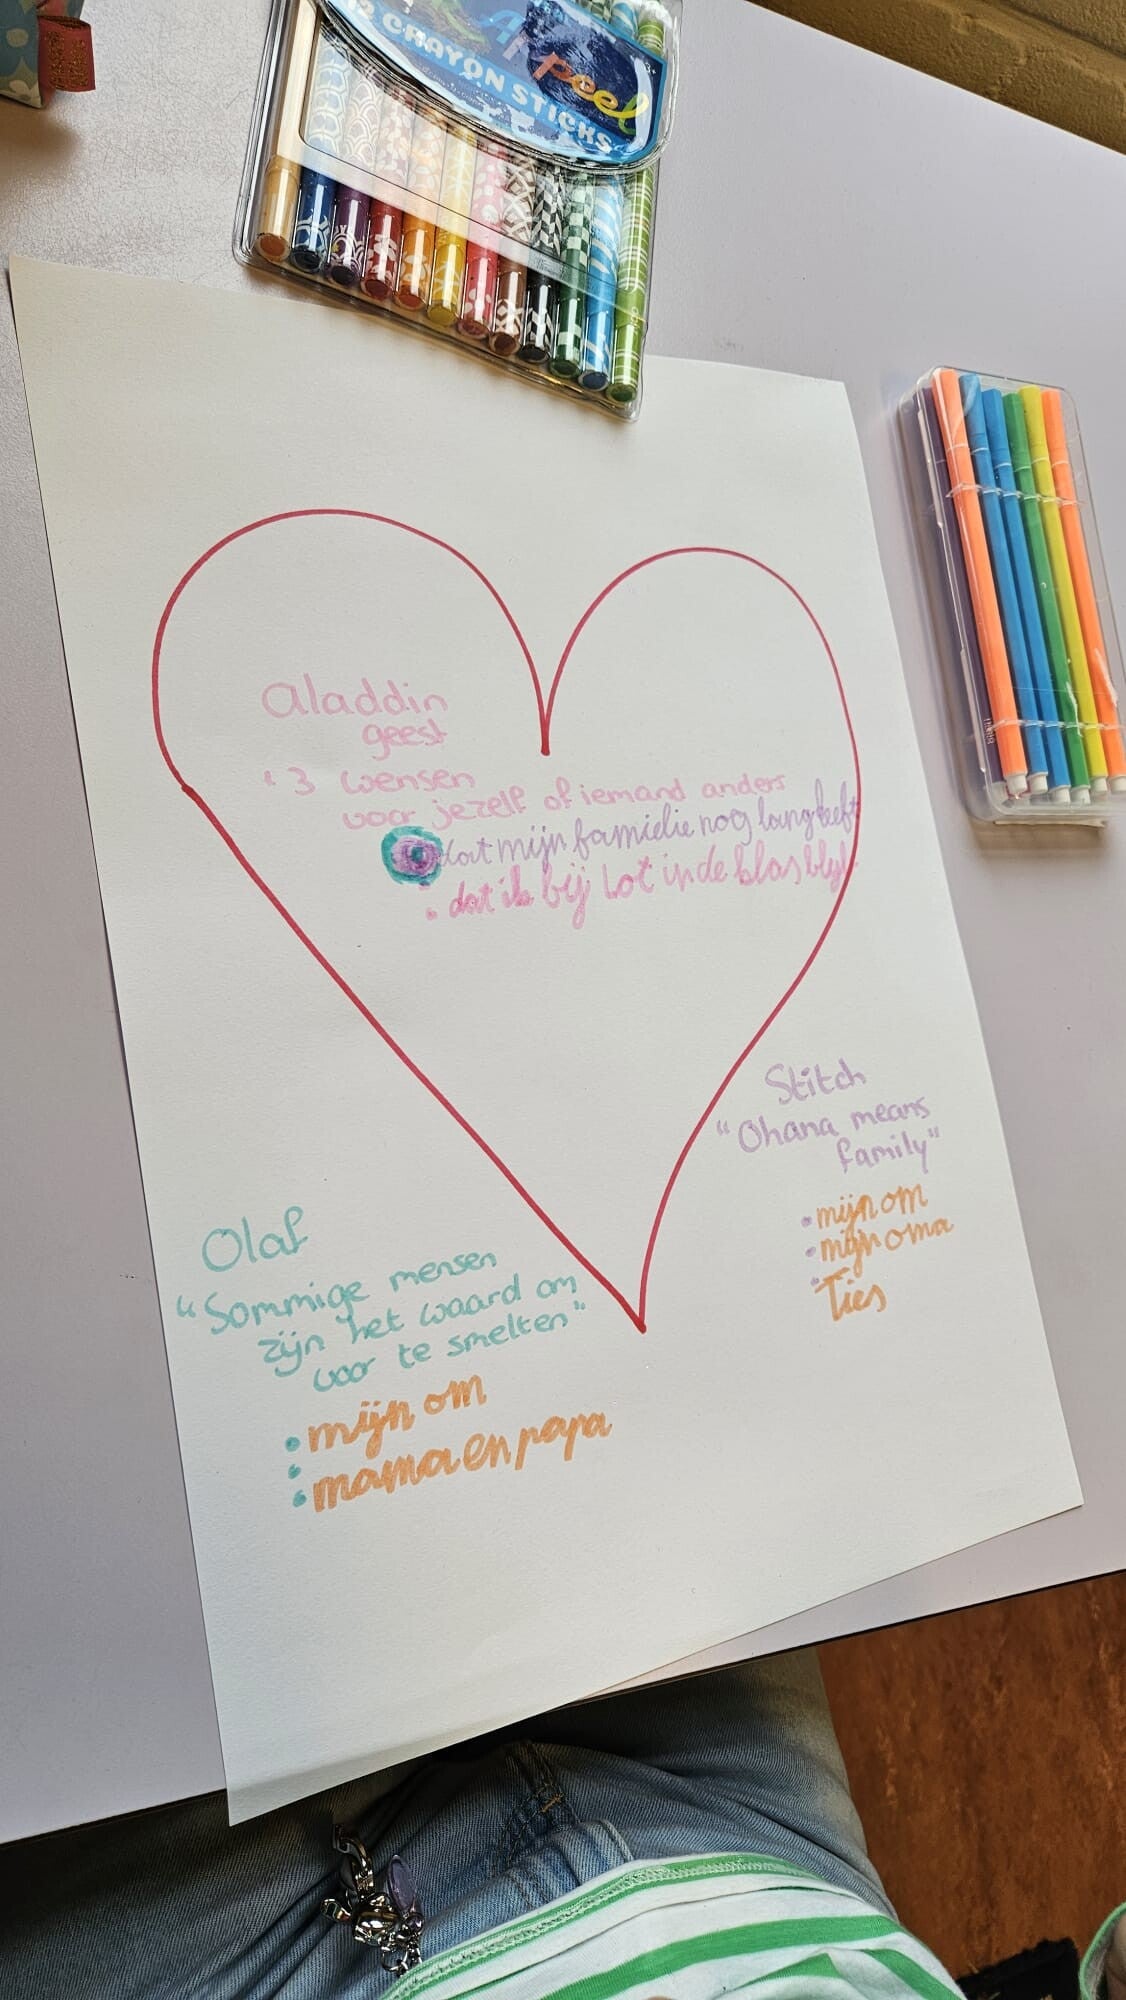 Appeel
12 CRAYON STICKS
Aladdin
geest
3 wensen
voor jezelf of iemand anders
dat mijn familie nog lang leeft
dat ik bij Lot in de klas blijf
Stitch
"Ohana means
family"
mijn om
mijn oma
Ties
Olaf
"Sommige mensen
zijn het waard om
voor te smelten"
mijn om
mama en papa